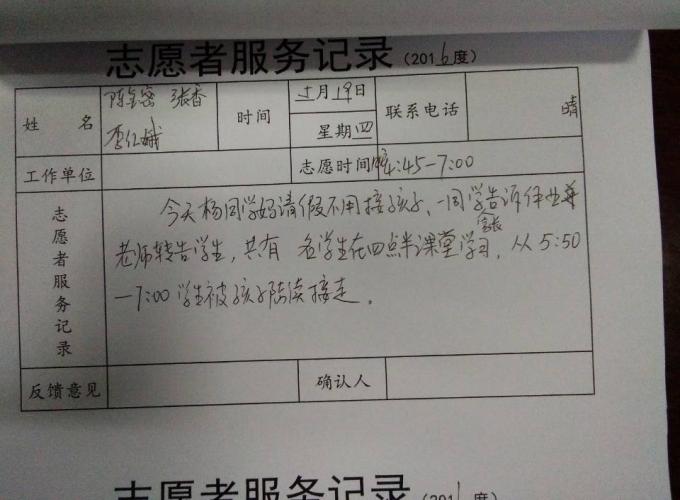 志愿者服务记录（2016度）
姓 名 陈金密 张香 李红娥 时间 十月19日 星期四 联系电话 晴
工作单位 志愿时间 4:45-7:00
志愿者服务记录
今天杨同学妈请假不用接孩子、一同学告诉作业并
老师转告学生，共有 名学生在四点半课堂学习，从5:50
-7:00学生被孩子家长陆续接走。
反馈意见 确认人
志愿者服务记录（2016度）